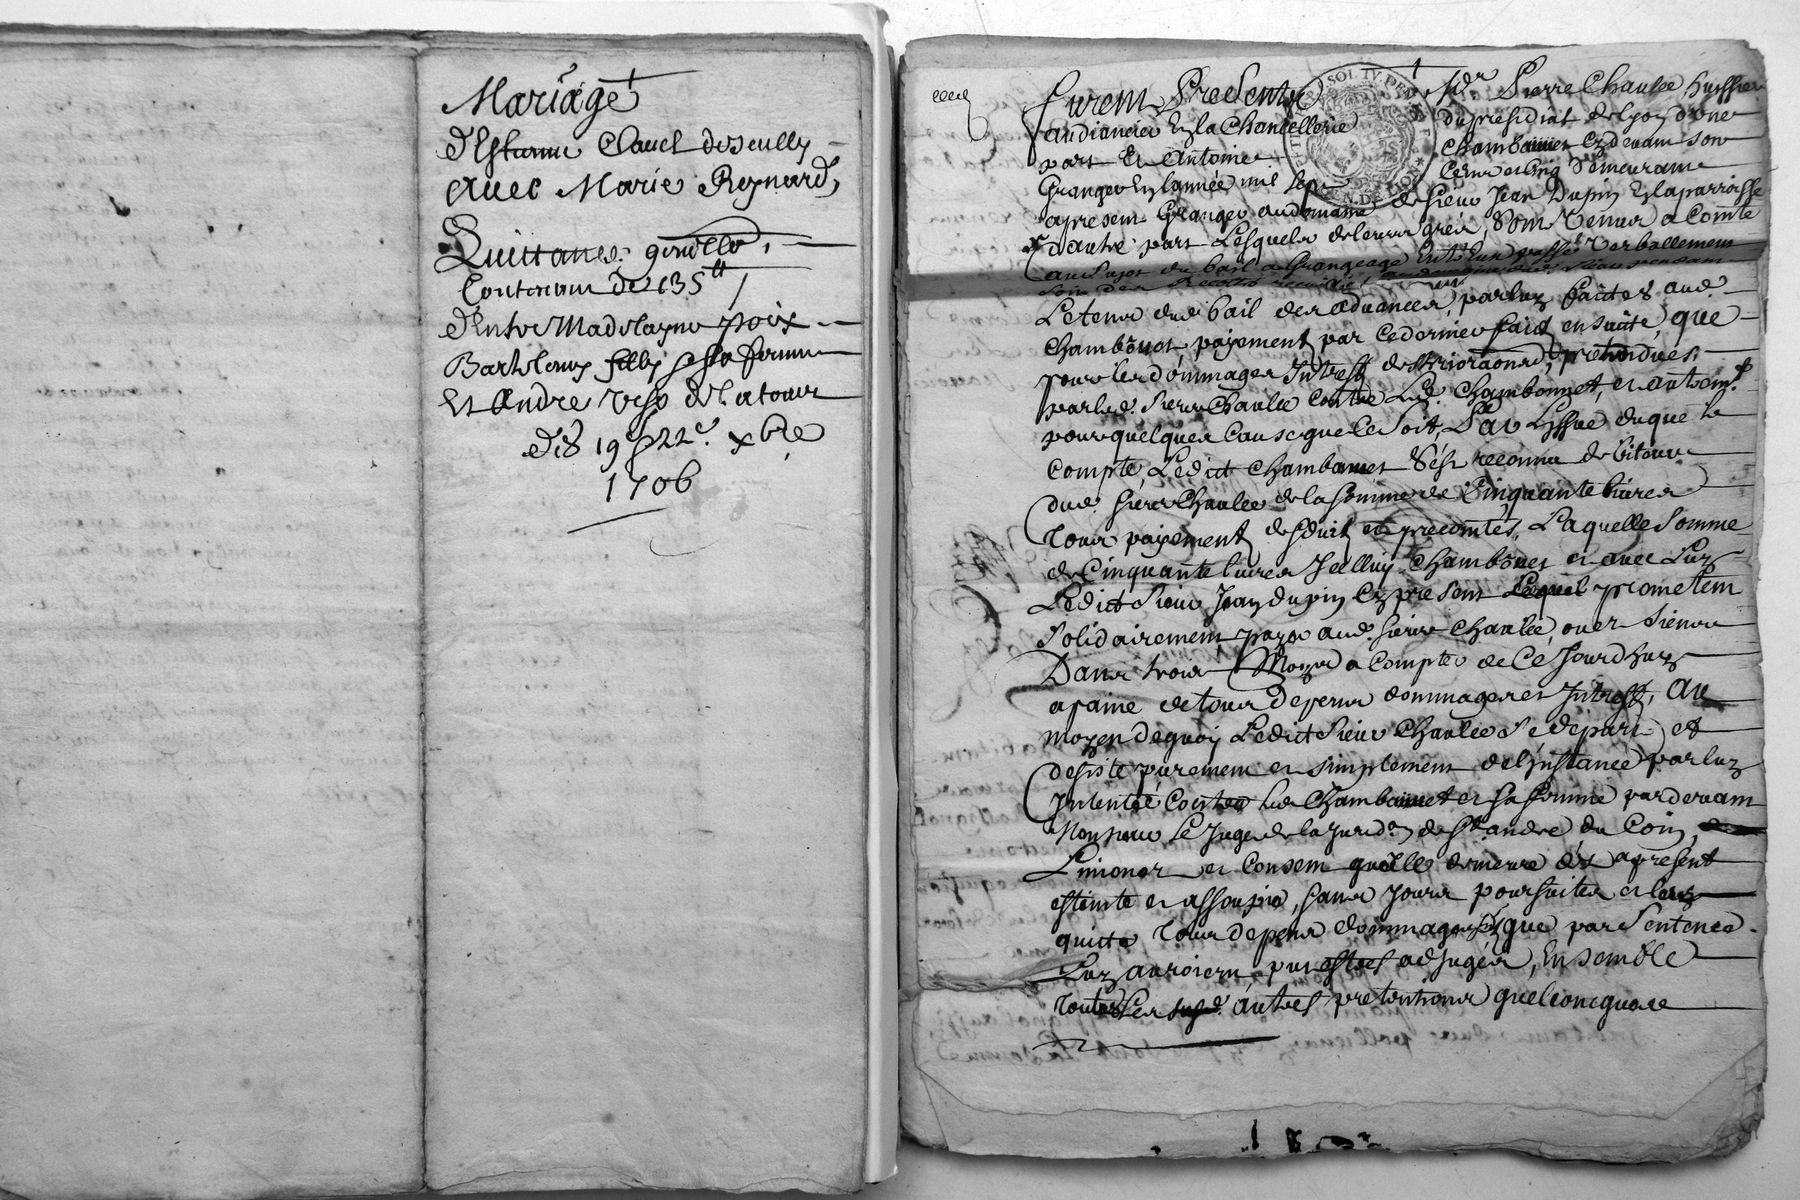 Mariage
d'Estienne Clauel descully
avec Marie Reynard,
Quittance
Contenant de 135 tt
d'entre Madelayne
Barthelemy sa femme
Et Andre de Latour
des 19 & 22e xbre
1706
Furent Presents Sr Pierre Chaulce Huissier
audiancier En la Chancellerie du presidiat de Lyon d'une
part Et Antoine Chambonnet Cy devant son
Granger En l'année mil Sept Cent et Cinq Demeurant
apresent Granger au domaine de sieur Jean Dupin En la parroisse
d'autre part Lesquels de leurs grés, Sont Venus a Comte
au Sujet du bail a Grangeage Entr'Eux passé Verballement
Le tenu dud. bail des aduances par luy faittes aud.
Chambonet, payement par Ce dernier faict en suitte, que
pour les dommages Intrest pretendues
par led. Sieur Chaulce Contre Led. Chambonnet, et autremt.
pour quelque Cause que Ce Soit, Par Lyssue duquel
Compte, Ledict Chambonnet S'est reconnu debiteur
dud. Sieur Chaulce de la somme de Cinquante liures
Tour payement desduit et precomtés, Laquelle Somme
de Cinquante liures Icelluy Chambonet et avec Luy
Ledict Sieur Jean dupin Cy present Lequel promettent
Solidairement payer aud. sieur Chaulce, ou es Siens
Dans trois Moys a Compter de Ce Jourdhuy
a paine de tous despens dommages et Intrest, Au
moyen dequoy Ledict Sieur Chaulce Se depart et
desiste purement et Simplement de l'Instance par luy
Intentée Contre led Chambonnet et sa femme pardevant
Monsieur Le Juge de la Jurisdon de St. andre du Coin
Limonet et Consent quelle demeure des apresent
esteinte et assoupie, sans Jours poursuites et les
quitte Tous despens dommages que par Sentence
Luy auroient pu estres adjuges, Ensemble
Toutes Les susd. autres pretentions quelconcques